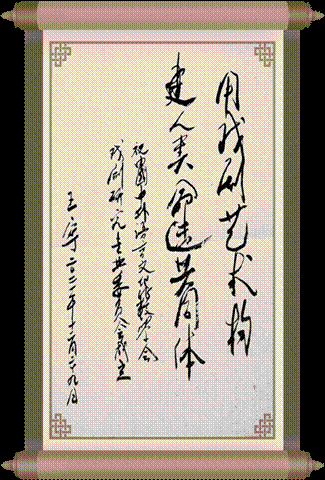 用戏剧艺术构
建人类命运共同体
祝贺中外语言文化比较学会
戏剧研究专业委员会成立
王宁 二〇二一年十二月二十九日